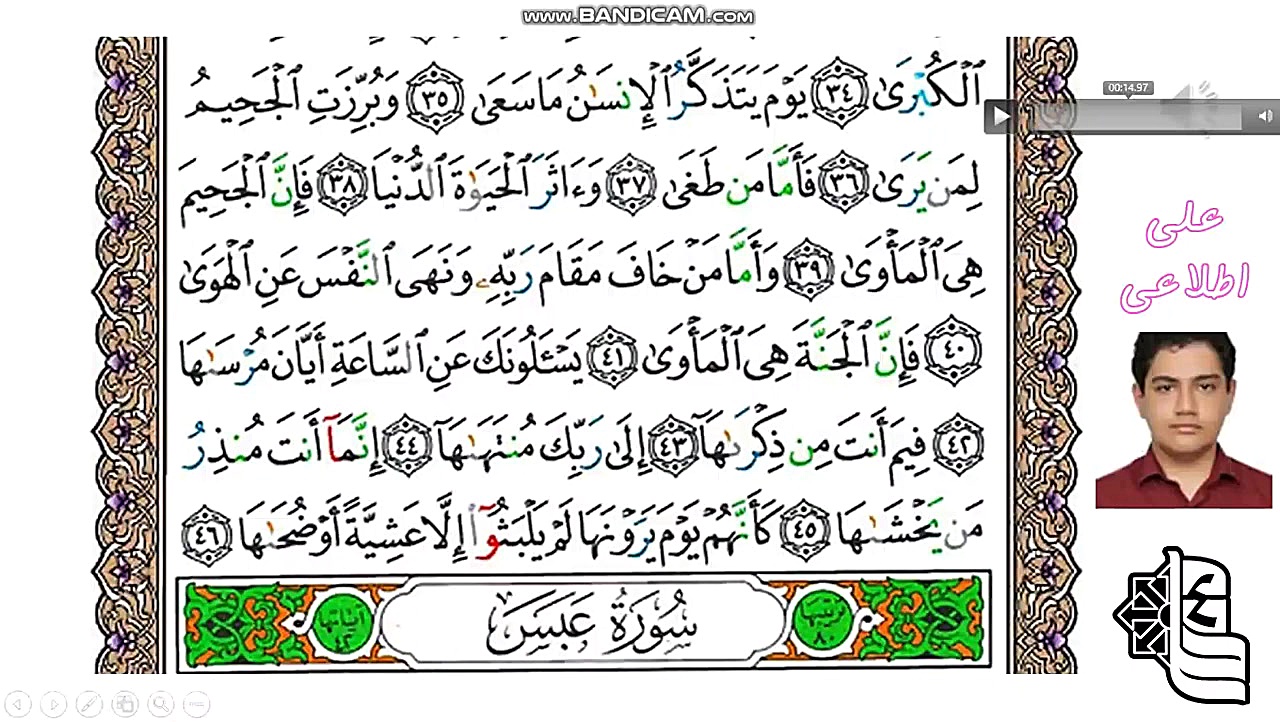 www.BANDICAM.com
ٱلۡكُبۡرَىٰ ٣٤ يَوۡمَ يَتَذَكَّرُ ٱلۡإِنسَٰنُ مَا سَعَىٰ ٣٥ وَبُرِّزَتِ ٱلۡجَحِيمُ
لِمَن يَرَىٰ ٣٦ فَأَمَّا مَن طَغَىٰ ٣٧ وَءَاثَرَ ٱلۡحَيَوٰةَ ٱلدُّنۡيَا ٣٨ فَإِنَّ ٱلۡجَحِيمَ
هِيَ ٱلۡمَأۡوَىٰ ٣٩ وَأَمَّا مَنۡ خَافَ مَقَامَ رَبِّهِۦ وَنَهَى ٱلنَّفۡسَ عَنِ ٱلۡهَوَىٰ
٤٠ فَإِنَّ ٱلۡجَنَّةَ هِيَ ٱلۡمَأۡوَىٰ ٤١ يَسۡـَٔلُونَكَ عَنِ ٱلسَّاعَةِ أَيَّانَ مُرۡسَىٰهَا
٤٢ فِيمَ أَنتَ مِن ذِكۡرَىٰهَآ ٤٣ إِلَىٰ رَبِّكَ مُنتَهَىٰهَآ ٤٤ إِنَّمَآ أَنتَ مُنذِرُ
مَن يَخۡشَىٰهَا ٤٥ كَأَنَّهُمۡ يَوۡمَ يَرَوۡنَهَا لَمۡ يَلۡبَثُوٓاْ إِلَّا عَشِيَّةً أَوۡ ضُحَىٰهَا ٤٦
ترتيبها ٨٠
سُورَةُ عَبَسَ
آياتها ٤٢
00:14.97
علی
اطلاعی